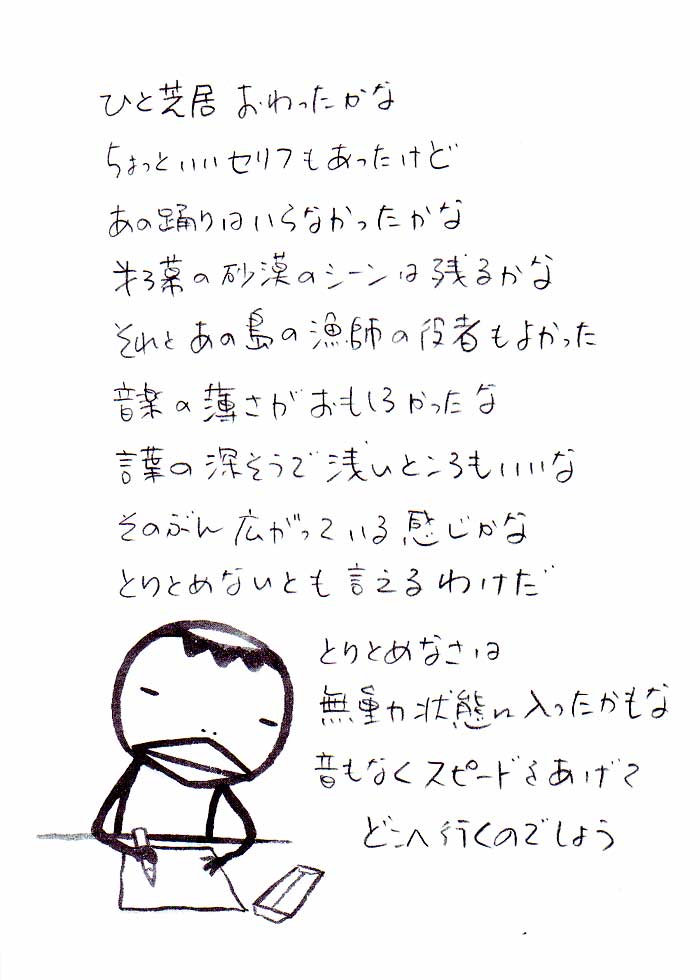 ひと芝居 おわったかな
ちょっといいセリフもあったけど
あの踊りはいらなかったかな
第3幕の砂漠のシーンは残るかな
それとあの島の漁師の役者もよかった
音楽の薄さがおもしろかったな
言葉の深そうで浅いところもいいな
そのぶん広がっている感じかな
とりとめないとも言えるわけだ
とりとめなさは
無重力状態に入ったかもな
音もなくスピードをあげて
どこへ行くのでしょう